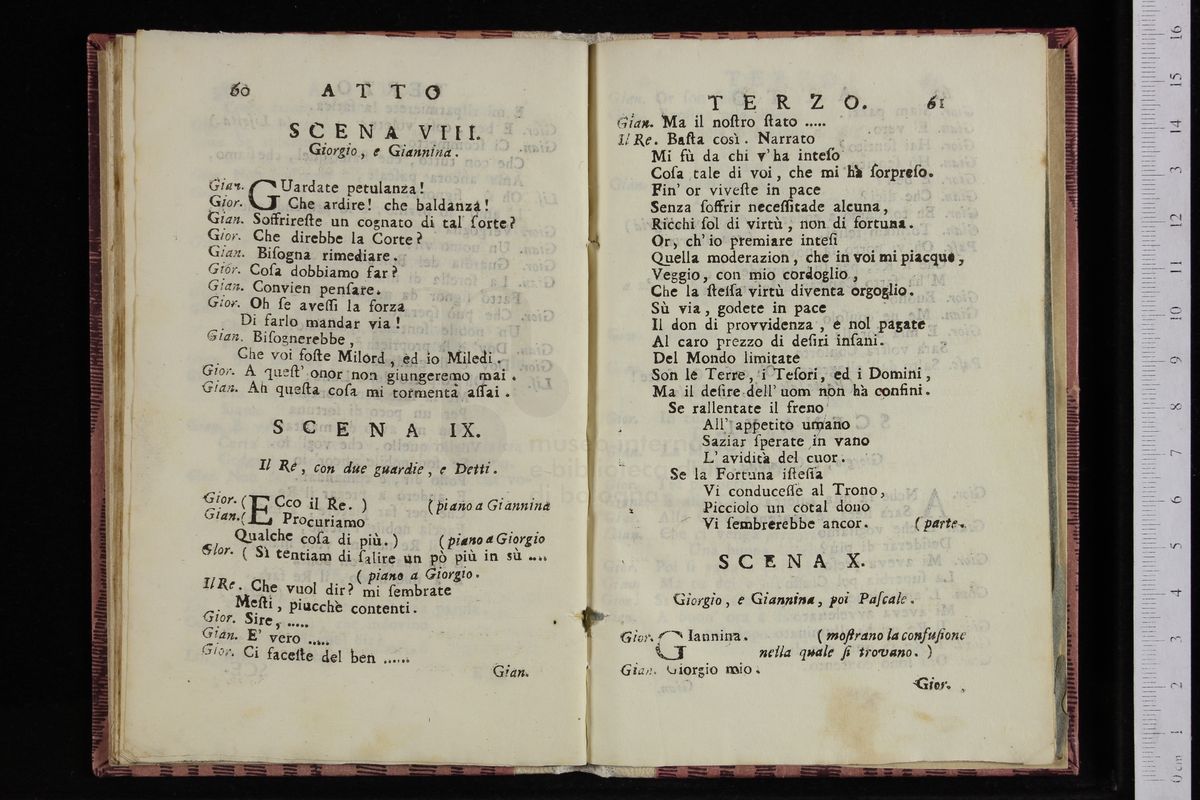 60 ATTO
SCENA VIII.
Giorgio, e Giannina.
Gian. GUardate petulanza!
Gior. Che ardire! che baldanza!
Gian. Soffrireſte un cognato di tal ſorte?
Gior. Che direbbe la Corte?
Gian. Biſogna rimediare.
Gior. Coſa dobbiamo far?
Gian. Convien penſare.
Gior. Oh ſe aveſſi la forza
Di farlo mandar via!
Gian. Biſognerebbe,
Che voi foſte Milord, ed io Miledi.
Gior. A queſt' onor non giungeremo mai.
Gian. Ah queſta coſa mi tormenta aſſai.
SCENA IX.
Il Rè, con due guardie, e Detti.
Gior. (ECco il Re. ) (piano a Giannina
Gian.( Procuriamo
Qualche coſa di più.) (piano a Giorgio
Gior. ( Sì tentiam di ſalire un pò più in sù ....
(piano a Giorgio.
Il Re. Che vuol dir? mi ſembrate
Meſti, piucchè contenti.
Gior. Sire, .....
Gian. E' vero .....
Gior. Ci faceſte del ben ......
Gian.
TERZO. 61
Gian. Ma il noſtro ſtato .....
Il Re. Baſta così. Narrato
Mi fù da chi v'ha inteſo
Coſa tale di voi, che mi hà ſorpreſo.
Fin' or viveſte in pace
Senza ſoffrir neceſſitade alcuna,
Ricchi ſol di virtù, non di fortuna.
Or, ch'io premiare inteſi
Quella moderazion, che in voi mi piacque,
Veggio, con mio cordoglio,
Che la ſteſſa virtù diventa orgoglio.
Sù via, godete in pace
Il don di provvidenza, e nol pagate
Al caro prezzo di deſiri inſani.
Del Mondo limitate
Son le Terre, i Teſori, ed i Domini,
Ma il deſire dell' uom non hà confini.
Se rallentate il freno
All' appetito umano
Saziar ſperate in vano
L' avidità del cuor.
Se la Fortuna iſteſſa
Vi conduceſſe al Trono,
Picciolo un cotal dono
Vi ſembrerebbe ancor. (parte.
SCENA X.
Giorgio, e Giannina, poi Paſcale.
Gior. GIannina. (moſtrano la confuſione
nella quale ſi trovano. )
Gian. Giorgio mio.
Gior.